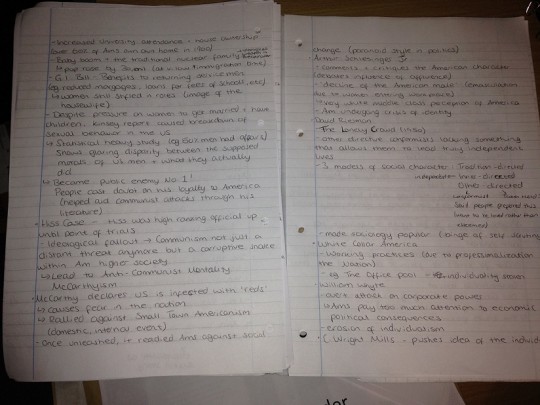 - Increased University attendance + house ownership
(over 60% of Ams own own home in 1960)
- Baby boom + the traditional nuclear family
↳ pop rose by 30mil
- G.I. Bill - Benefits to returning service men
(eg reduced mortgages, loans for fees of school, etc)
↳ women still stifled + roles (image of the
housewife)
- Despite pressure on women to get married + have
children, Kinsey report caused breakdown of
sexual behavior in the US
↳ Statistical heavy study (eg 50% men had affairs)
Shows glaring disparity between the supposed
morals of US men + what they actually
did
↳ Became public enemy No. 1!
People cast doubt on his loyalty to America
(helped aid communist attacks through his
literature)
- Hiss Case - Hiss was high ranking official up
until point of trials
- Ideological fallout → Communism not just a
distant threat anymore but a corruptive snake
within Am higher society
↳ Lead to Anti-Communist Mentality
McCarthyism
- McCarthy declares US is infested with 'reds'
↳ causes fear in the nation
↳ Rallied against Small Town Americanism
(domestic, internal event)
- once unleashed, it readied Ams against social
change (paranoid style in politics)
Arthur Schlesinger Jr
- comments + critiques the American character
(pervasive influence of affluence)
- "decline of the American male" (emasculation
due to women entering workplace)
- very white middle class perception of America
- Am undergoing crisis of identity
- David Riesman
- The Lonely Crowd (1950)
- other directive conformists lacking something
that allows them to lead truly independent
lives
- 3 models of social character: Tradition-directed
Inner-directed
Other directed
- made sociology popular (change of self scrutiny)
White Collar America
- Working practices (due to professionalization of
the nation)
- eg The office pool - individuality stolen
- William Whyte
- overt attack on corporate power
↳ Ams pay too much attention to economic
political consequences
- erosion of individualism
- C. Wright Mills - pushes idea of the